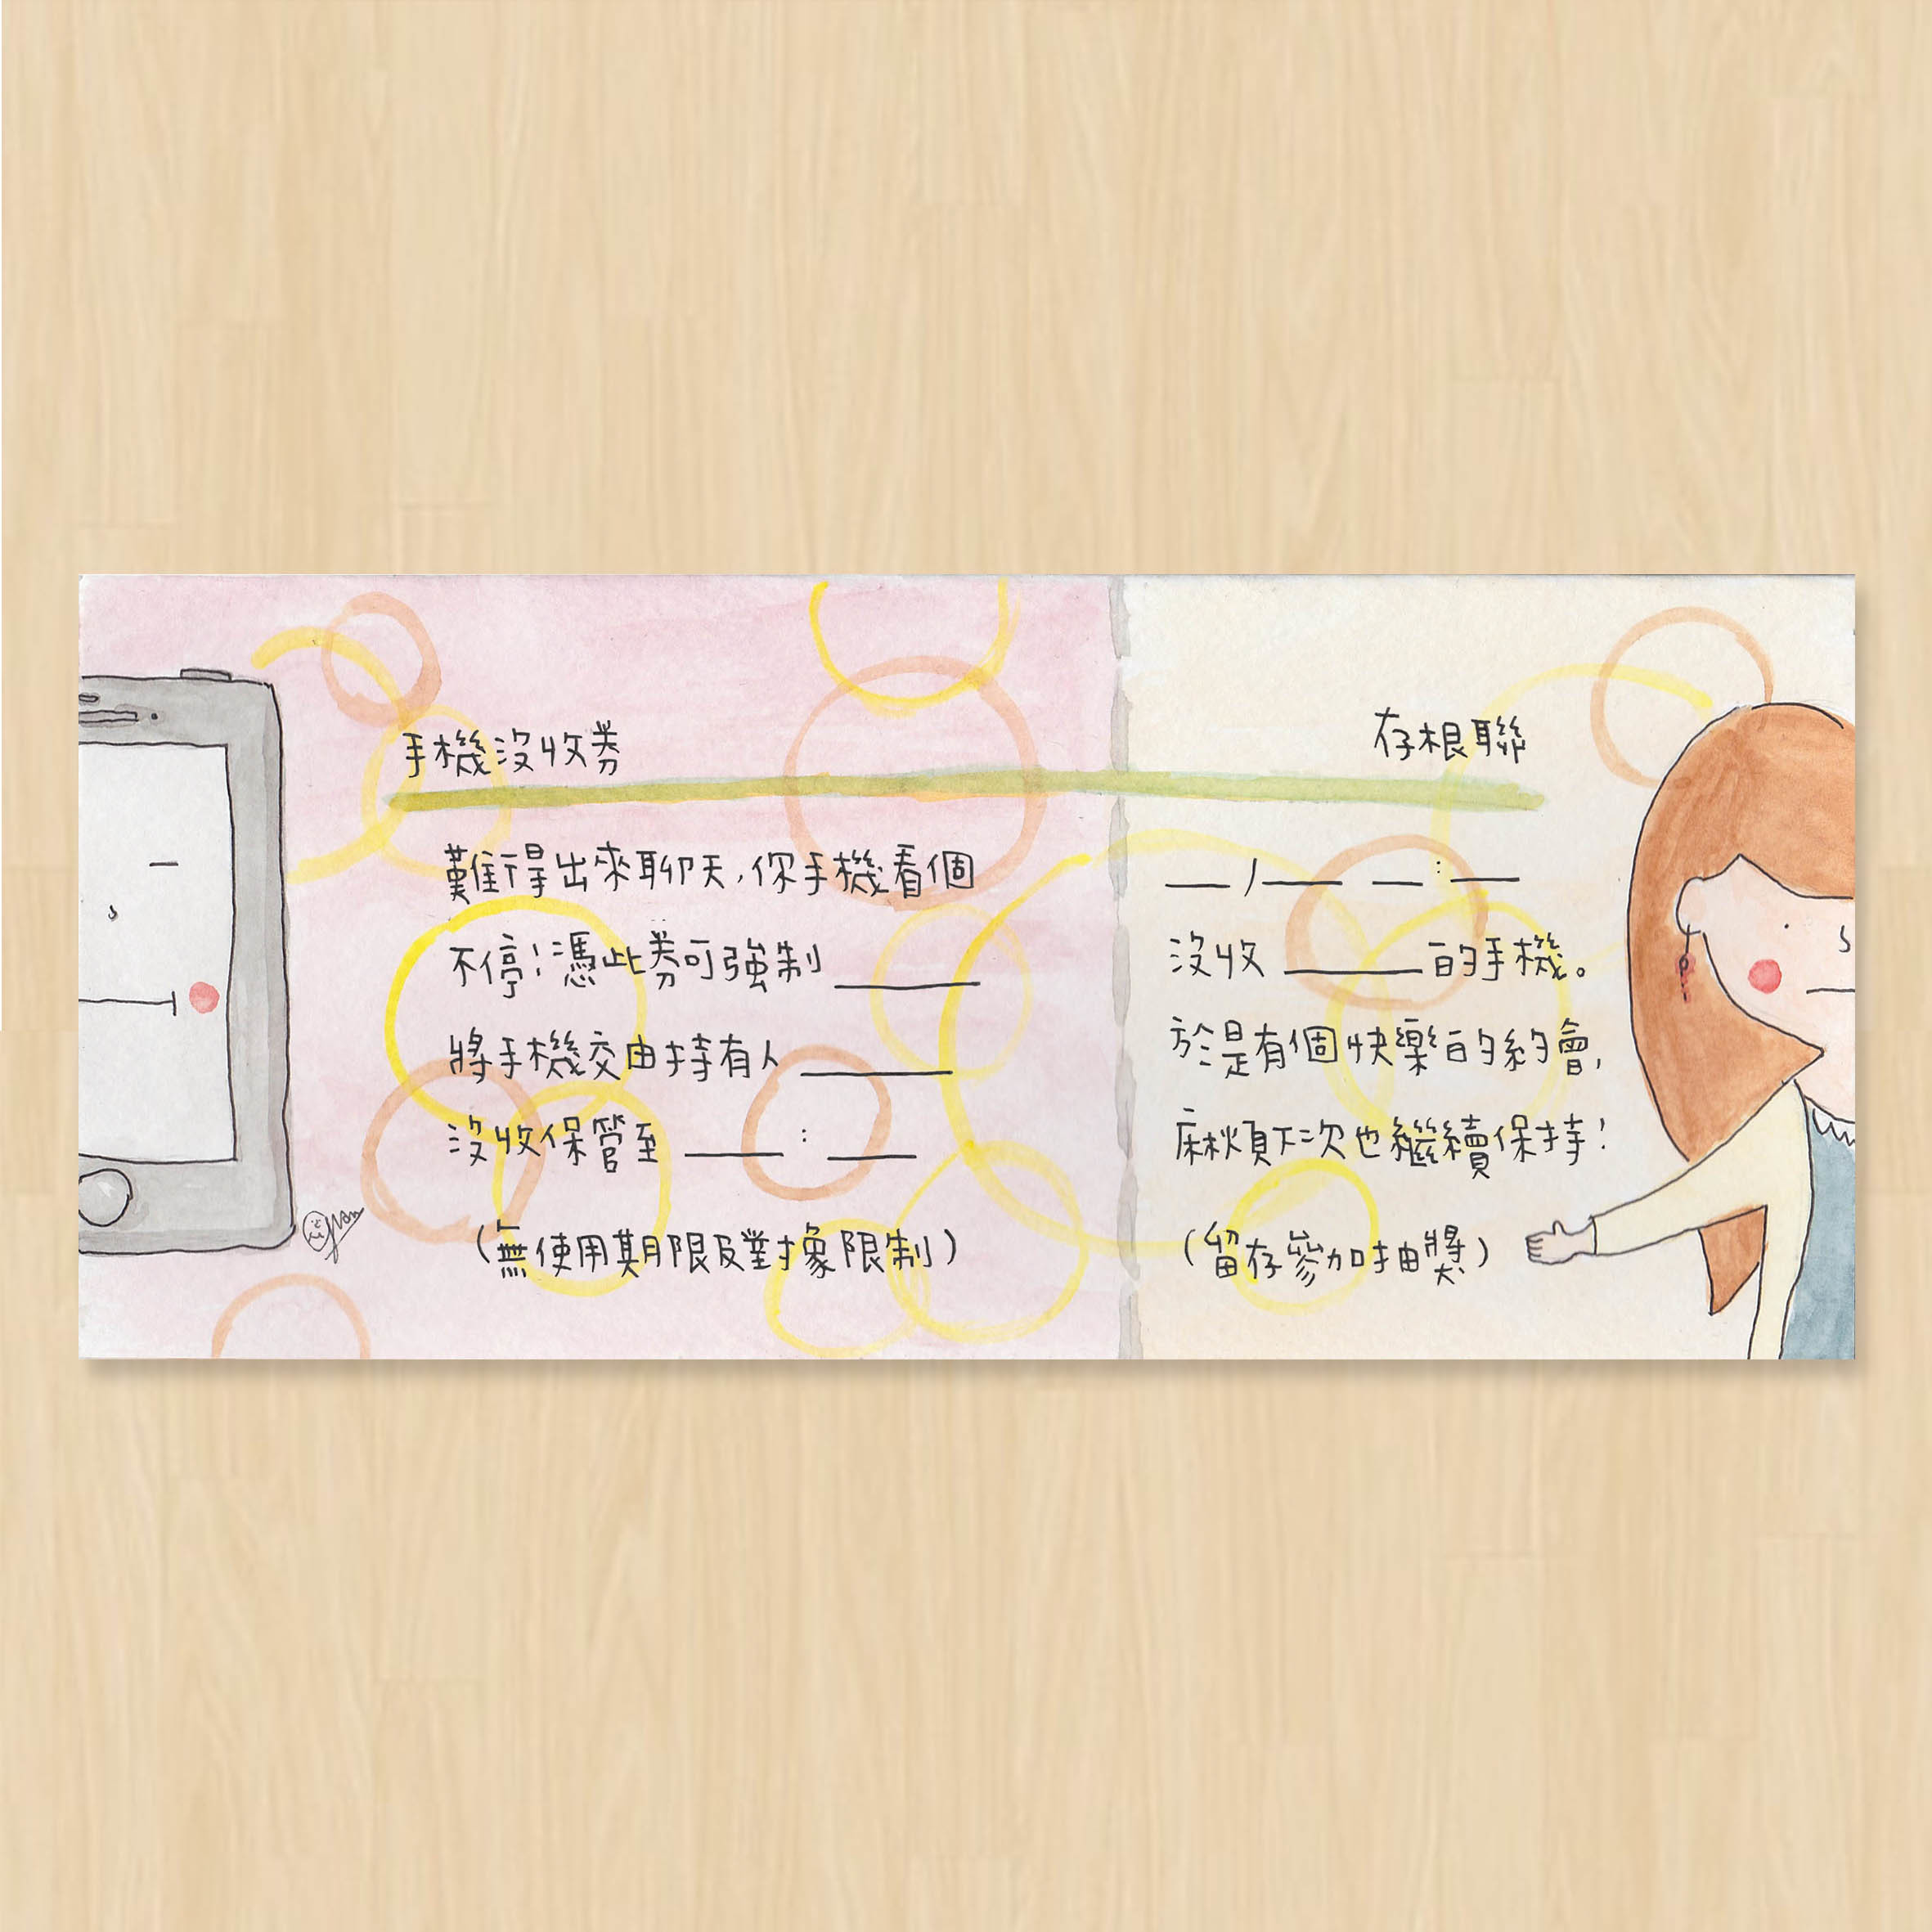 手機沒收券
難得出來聊天,你手機看個
不停!憑此券可強制______
將手機交由持有人______
沒收保管至____:____
(無使用期限及對象限制)
存根聯
__/__ __:__
沒收______的手機。
於是有個快樂的約會,
麻煩下次也繼續保持!
(留存參加抽獎)